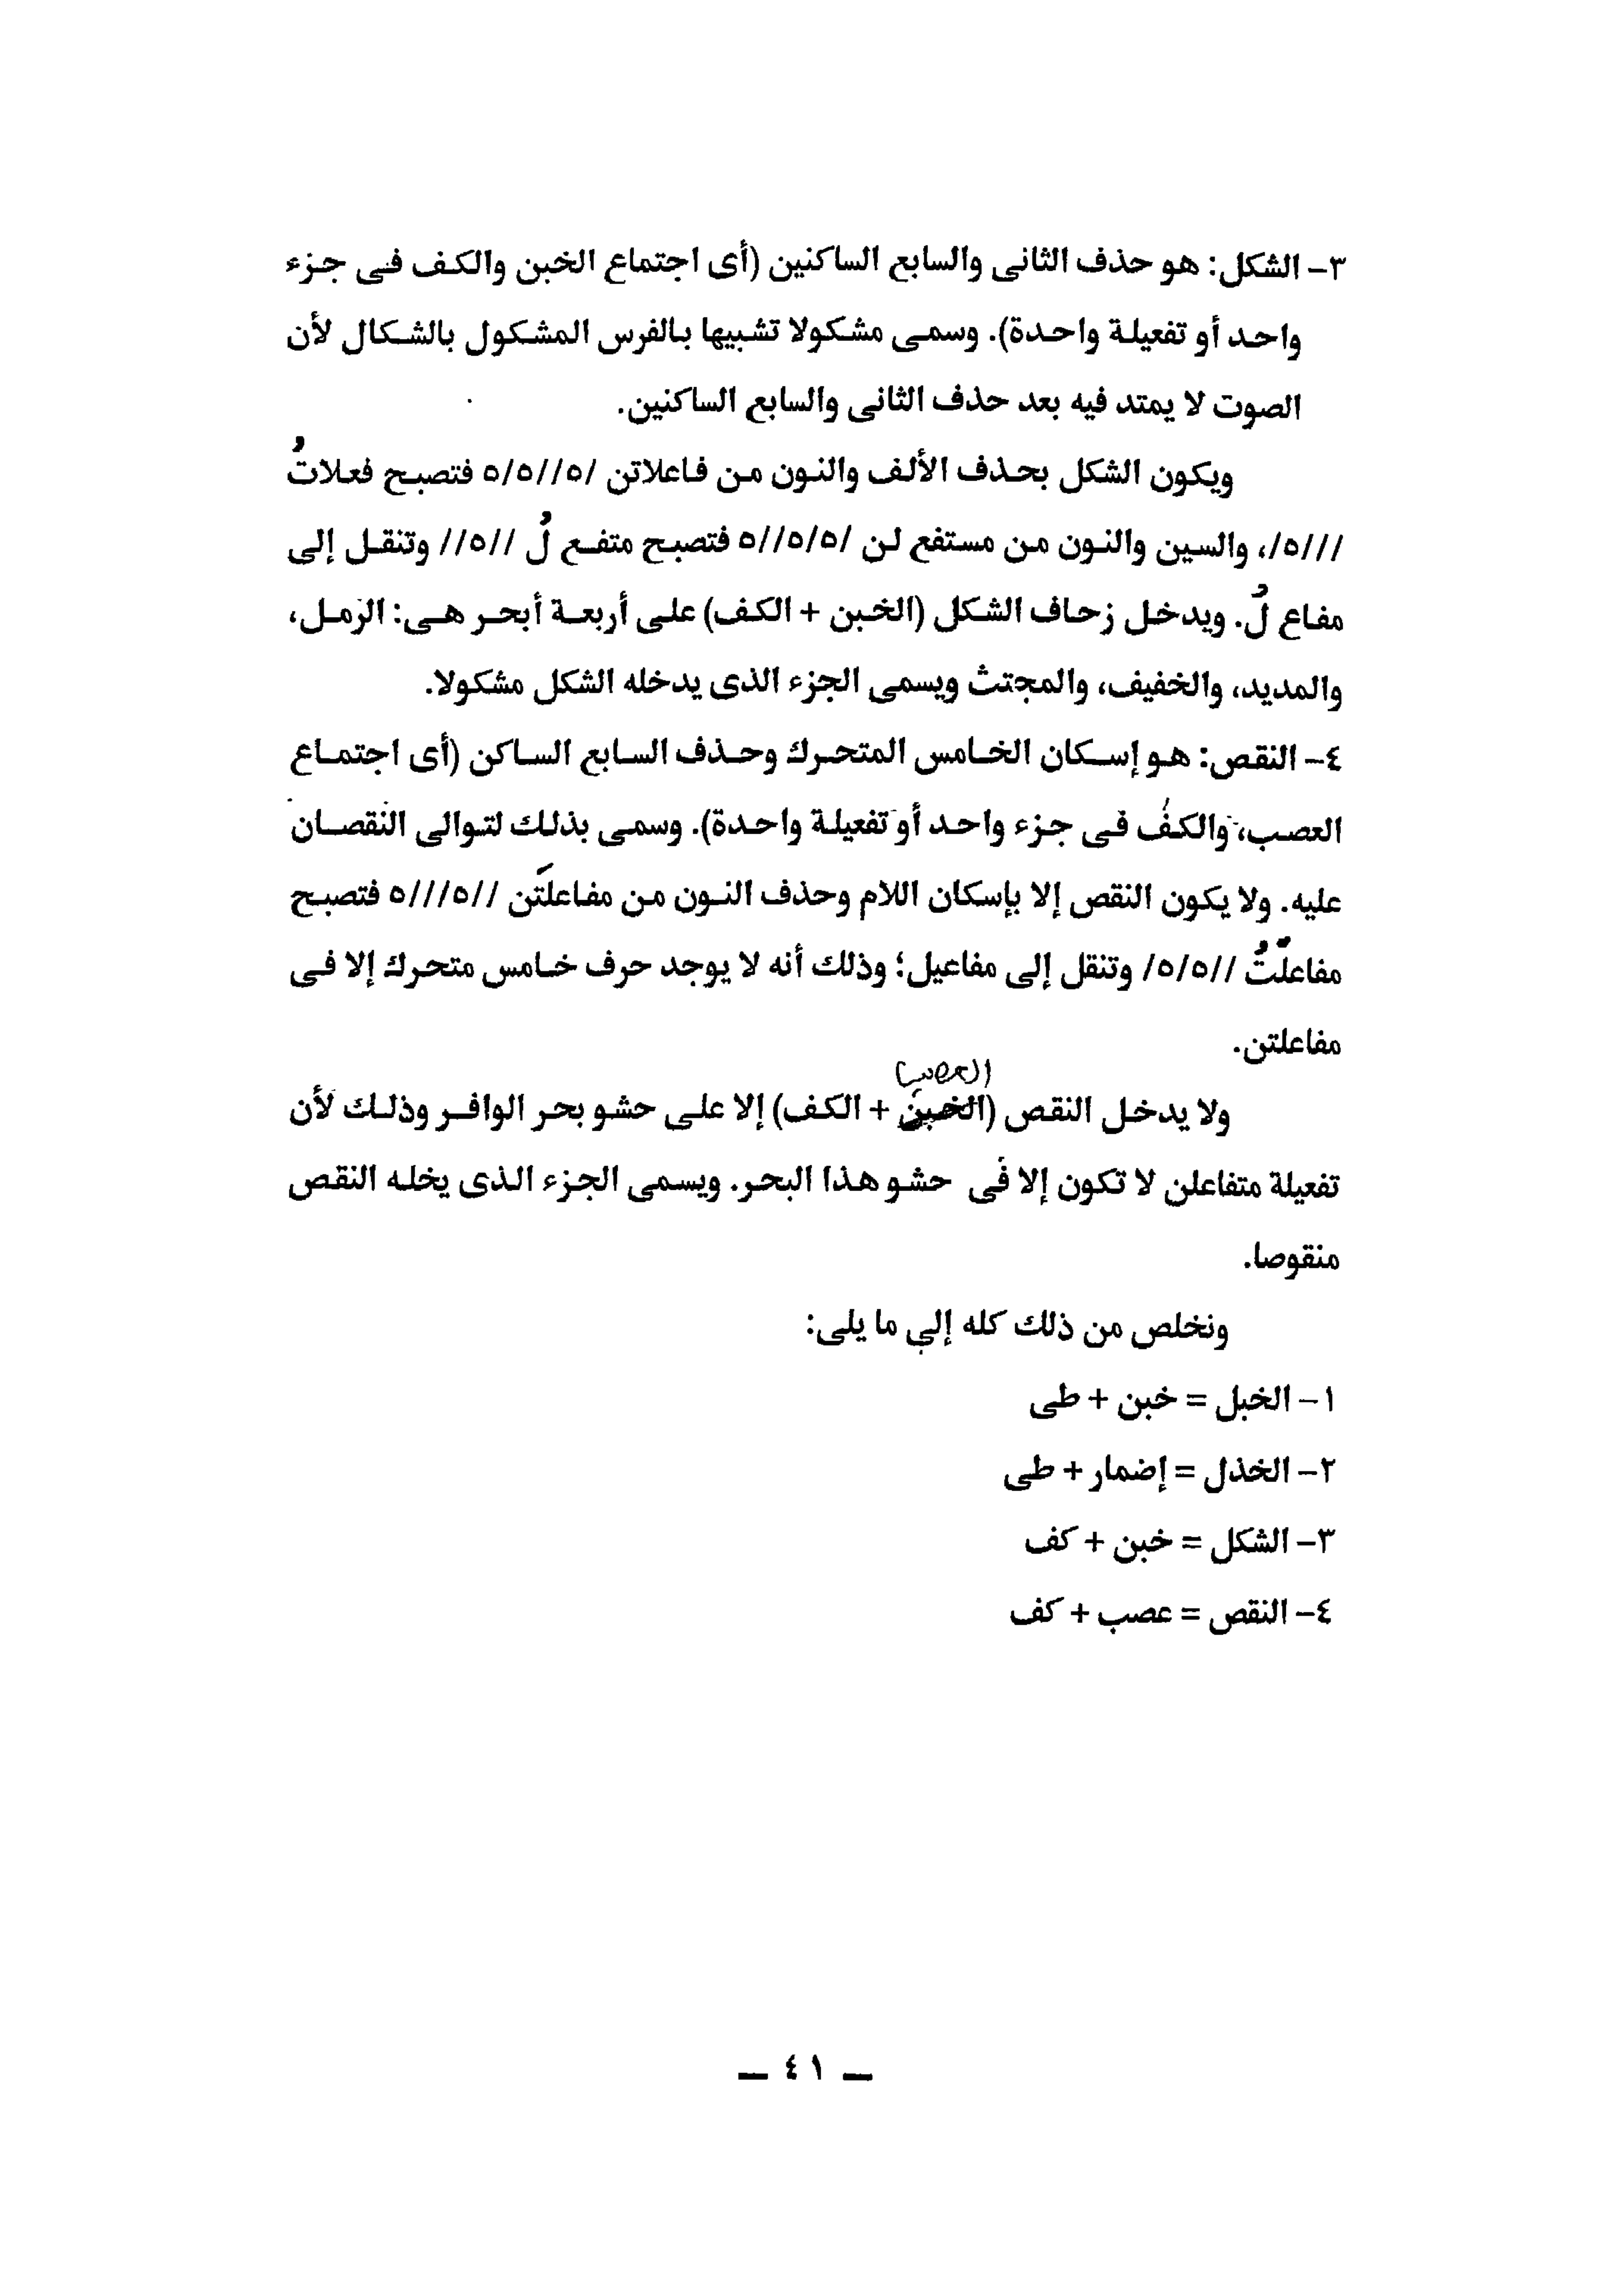 ٣- الشكل: هو حذف الثانى والسابع الساكنين (أى اجتماع الخبن والكف فى جزء
واحد أو تفعيلة واحدة). وسمى مشكولا تشبيها بالفرس المشكول بالشكال لأن
الصوت لا يمتد فيه بعد حذف الثانى والسابع الساكنين.
ويكون الشكل بحذف الألف والنون من فاعلاتن /٥//٥/٥ فتصبح فعلاتُ
///٥/، والسين والنون من مستفع لن /٥/٥//٥ فتصبح متفع لُ //٥// وتنقل إلى
مفاع لُ. ويدخل زحاف الشكل (الخبن + الكف) على أربعة أبحر هى: الرمل،
والمديد، والخفيف، والمجتث ويسمى الجزء الذى يدخله الشكل مشكولا.
٤- النقص: هو إسكان الخامس المتحرك وحذف السابع الساكن (أى اجتماع
العصب، والكف فى جزء واحد أو تفعيلة واحدة). وسمى بذلك لتوالى النقصان
عليه. ولا يكون النقص إلا بإسكان اللام وحذف النون من مفاعلَتن //٥///٥ فتصبح
مفاعلْتُ //٥/٥/ وتنقل إلى مفاعيل؛ وذلك أنه لا يوجد حرف خامس متحرك إلا فى
مفاعلتن.
العصب
ولا يدخل النقص (الخبن + الكف) إلا على حشو بحر الوافر وذلك لأن
تفعيلة متفاعلن لا تكون إلا فى حشو هذا البحر. ويسمى الجزء الذى يخله النقص
منقوصا.
ونخلص من ذلك كله إلى ما يلى:
١- الخبل = خبن + طى
٢- الخذل = إضمار + طى
٣- الشكل = خبن + كف
٤- النقص = عصب + كف
— ٤١ —